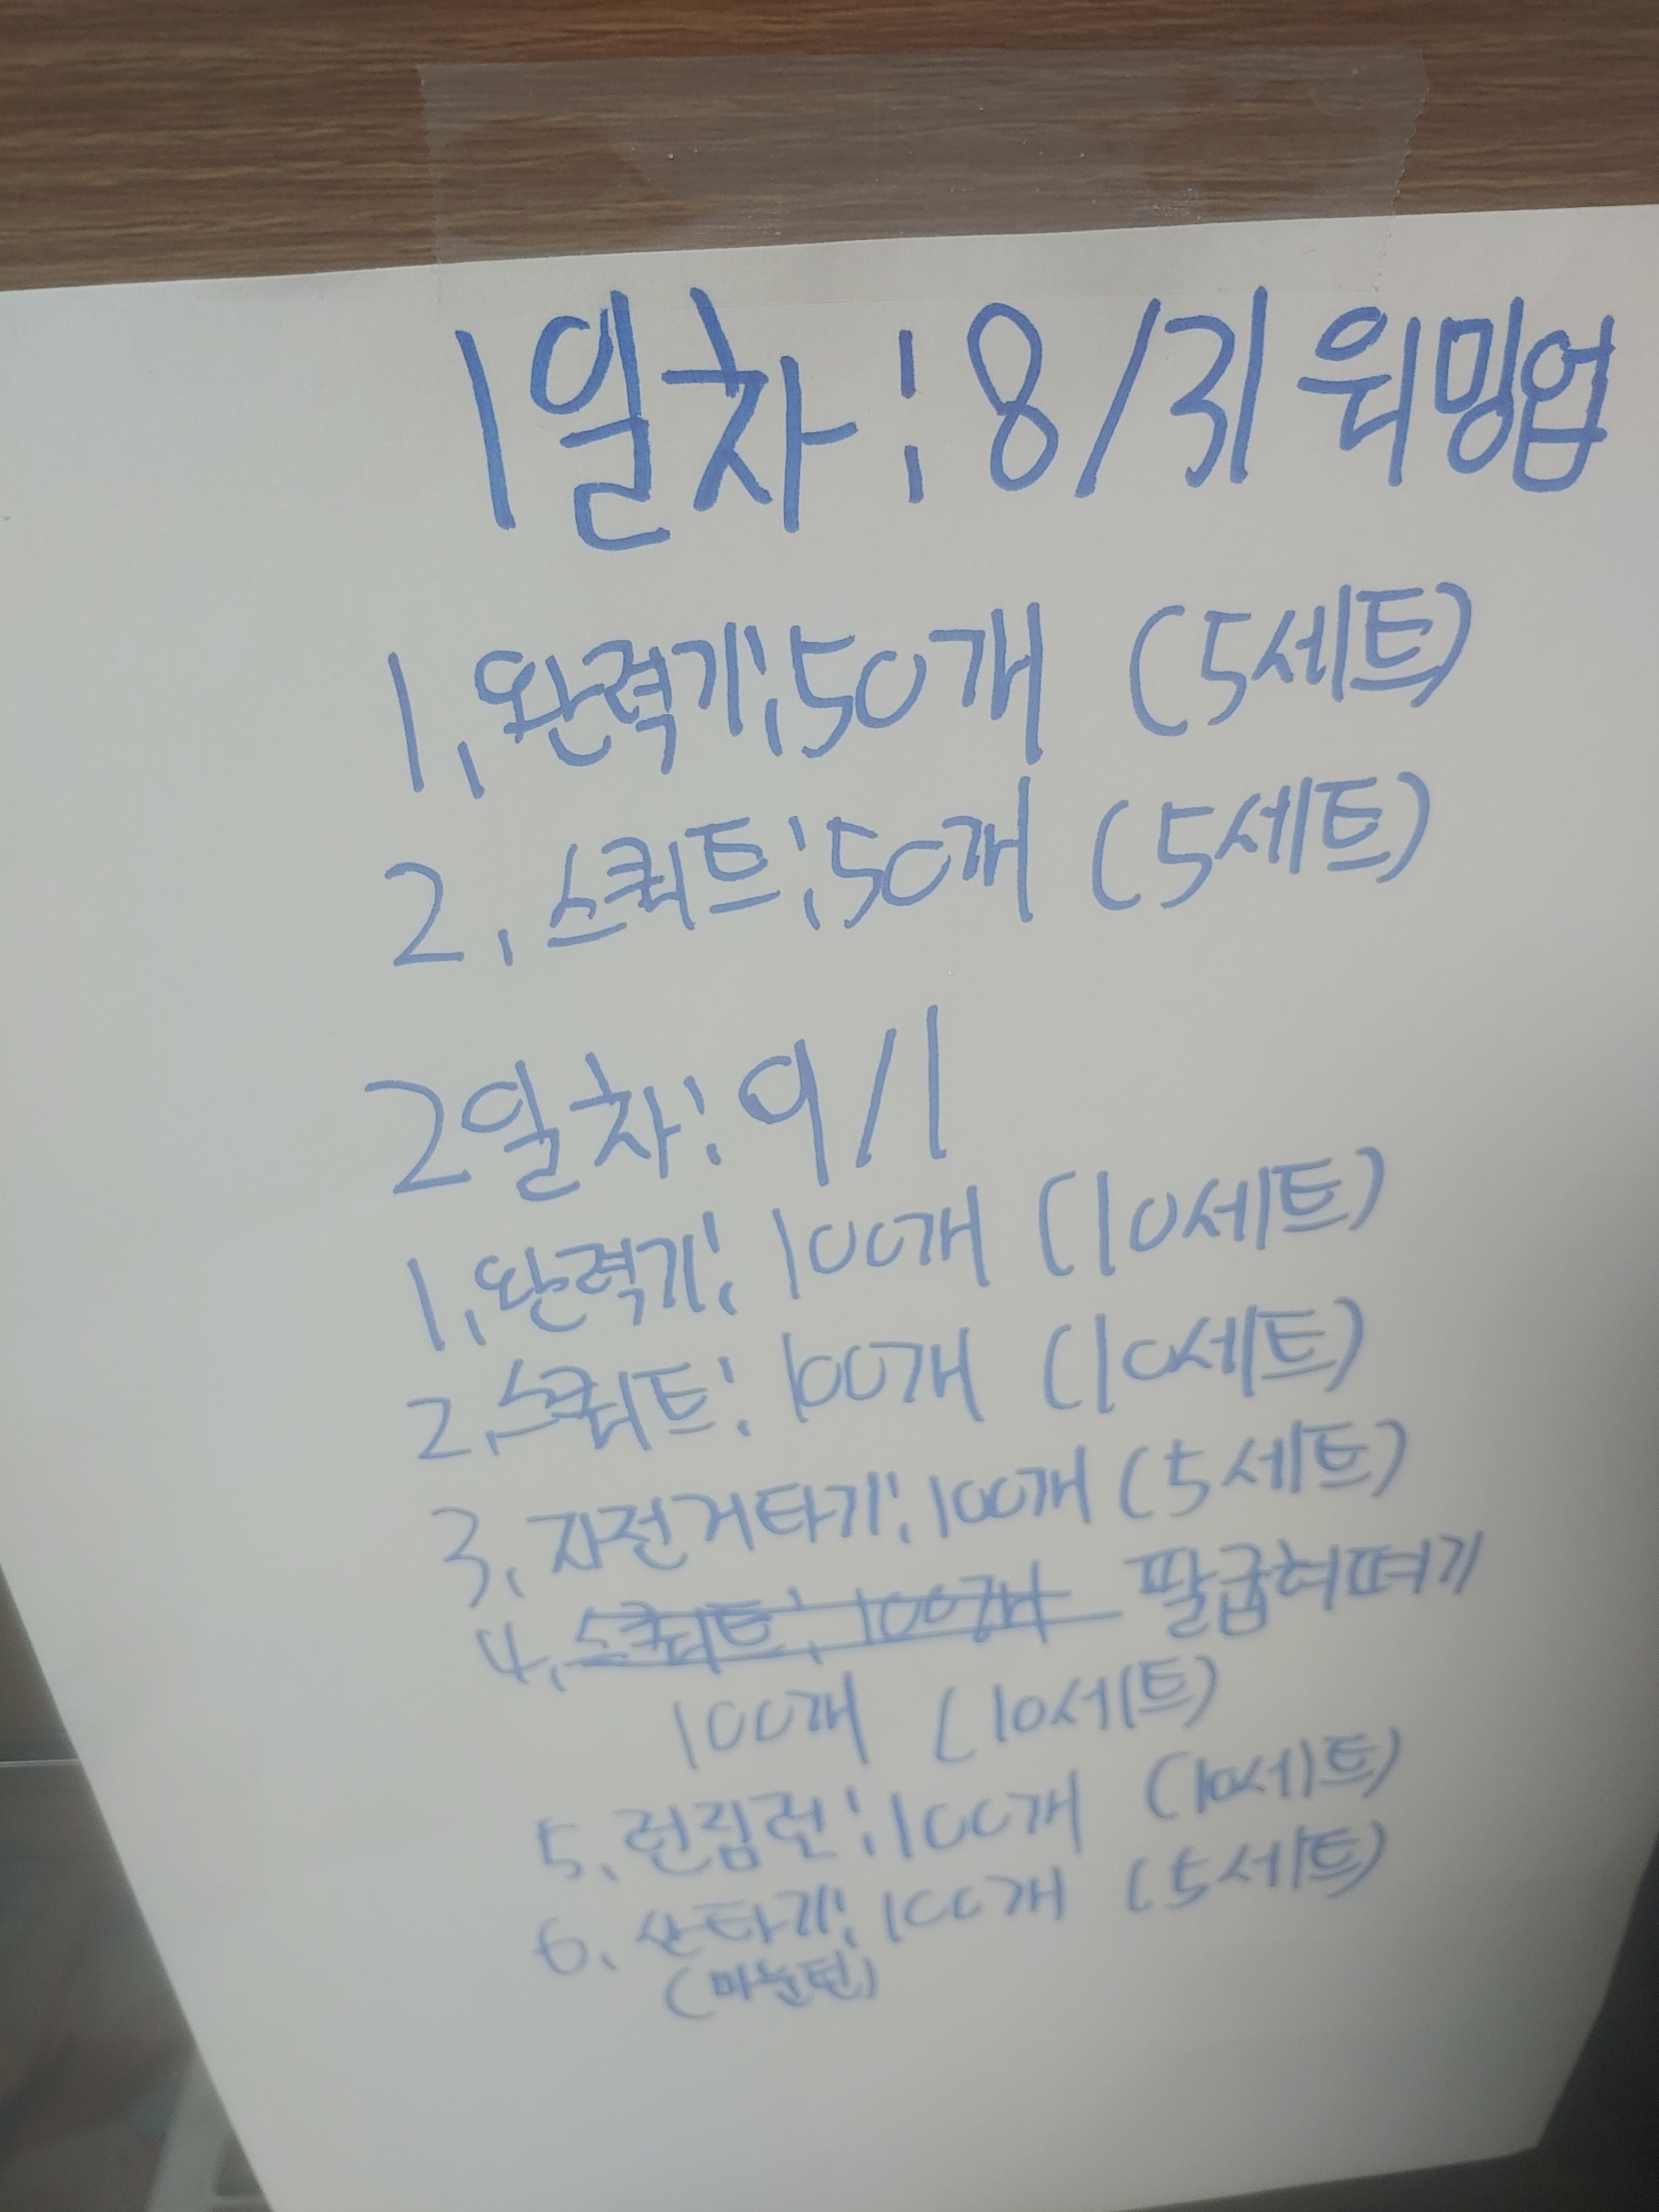 1일차: 8/31 워밍업
1. 완력기: 50개 (5세트)
2. 스쿼트: 50개 (5세트)
2일차: 9/1
1. 완력기: 100개 (10세트)
2. 스쿼트: 100개 (10세트)
3. 자전거타기: 100개 (5세트)
4. 스쿼트: 100개 팔굽혀펴기
100개 (10세트)
5. 런짐런: 100개 (10세트)
6. 산타기: 100개 (5세트)
(마운틴)